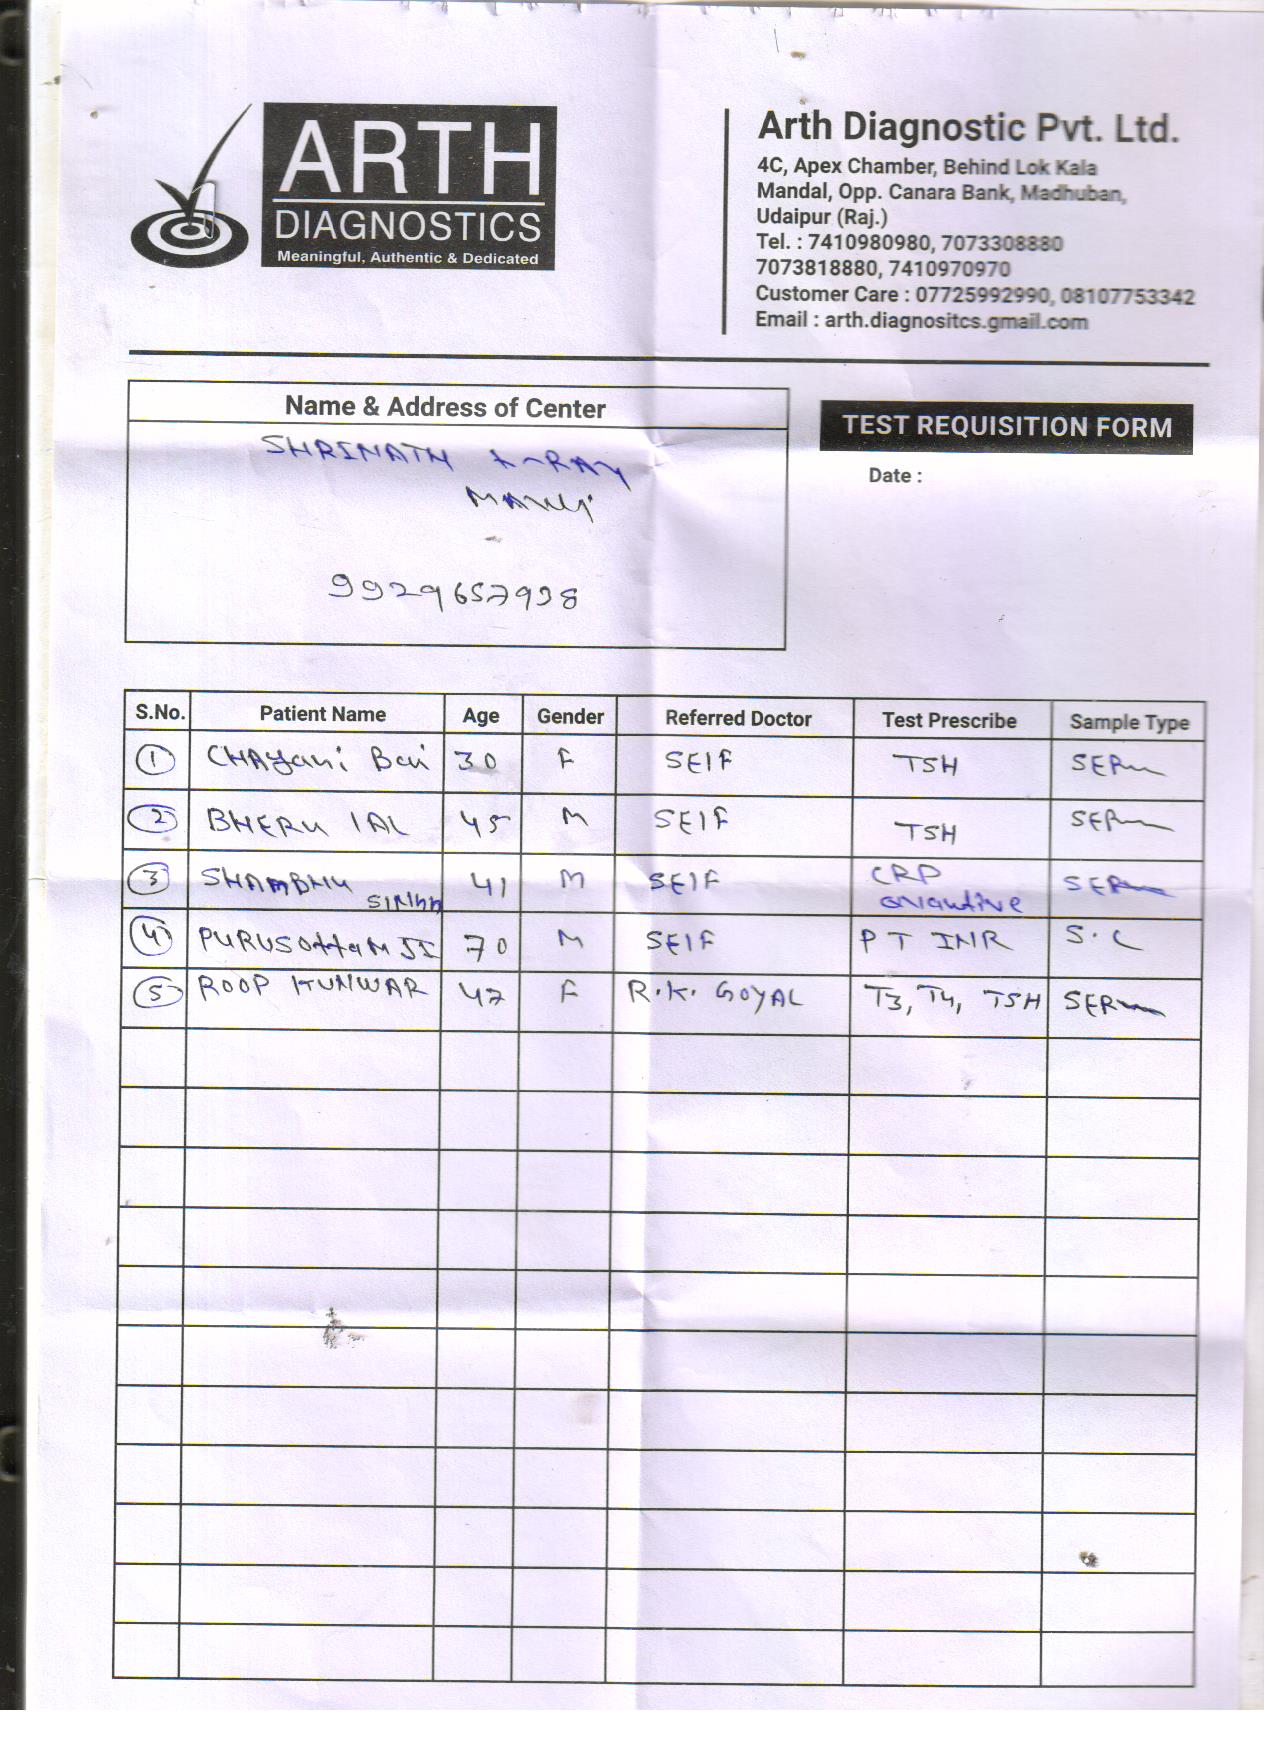 ARTH
DIAGNOSTICS
Meaningful, Authentic & Dedicated
Arth Diagnostic Pvt. Ltd.
4C, Apex Chamber, Behind Lok Kala
Mandal, Opp. Canara Bank, Madhuban,
Udaipur (Raj.)
Tel. : 7410980980, 7073308880
7073818880, 7410970970
Customer Care : 07725992990, 08107753342
Email : arth.diagnositcs.gmail.com
Name & Address of Center
SHRINATH X-RAY
9929657998
TEST REQUISITION FORM
Date :
S.No. Patient Name Age Gender Referred Doctor Test Prescribe Sample Type
1 CHAyani Bai 30 F SElF TSH SERum
2 BHERU lAL 45 M SElF TSH SERum
3 SHAMBHU SINhh 41 M SElF CRP SERum
4 PURUSOttAM JI 70 M SElF PT INR S.C
5 ROOP KUNWAR 47 F R.K. GOYAL T3, T4, TSH SERum